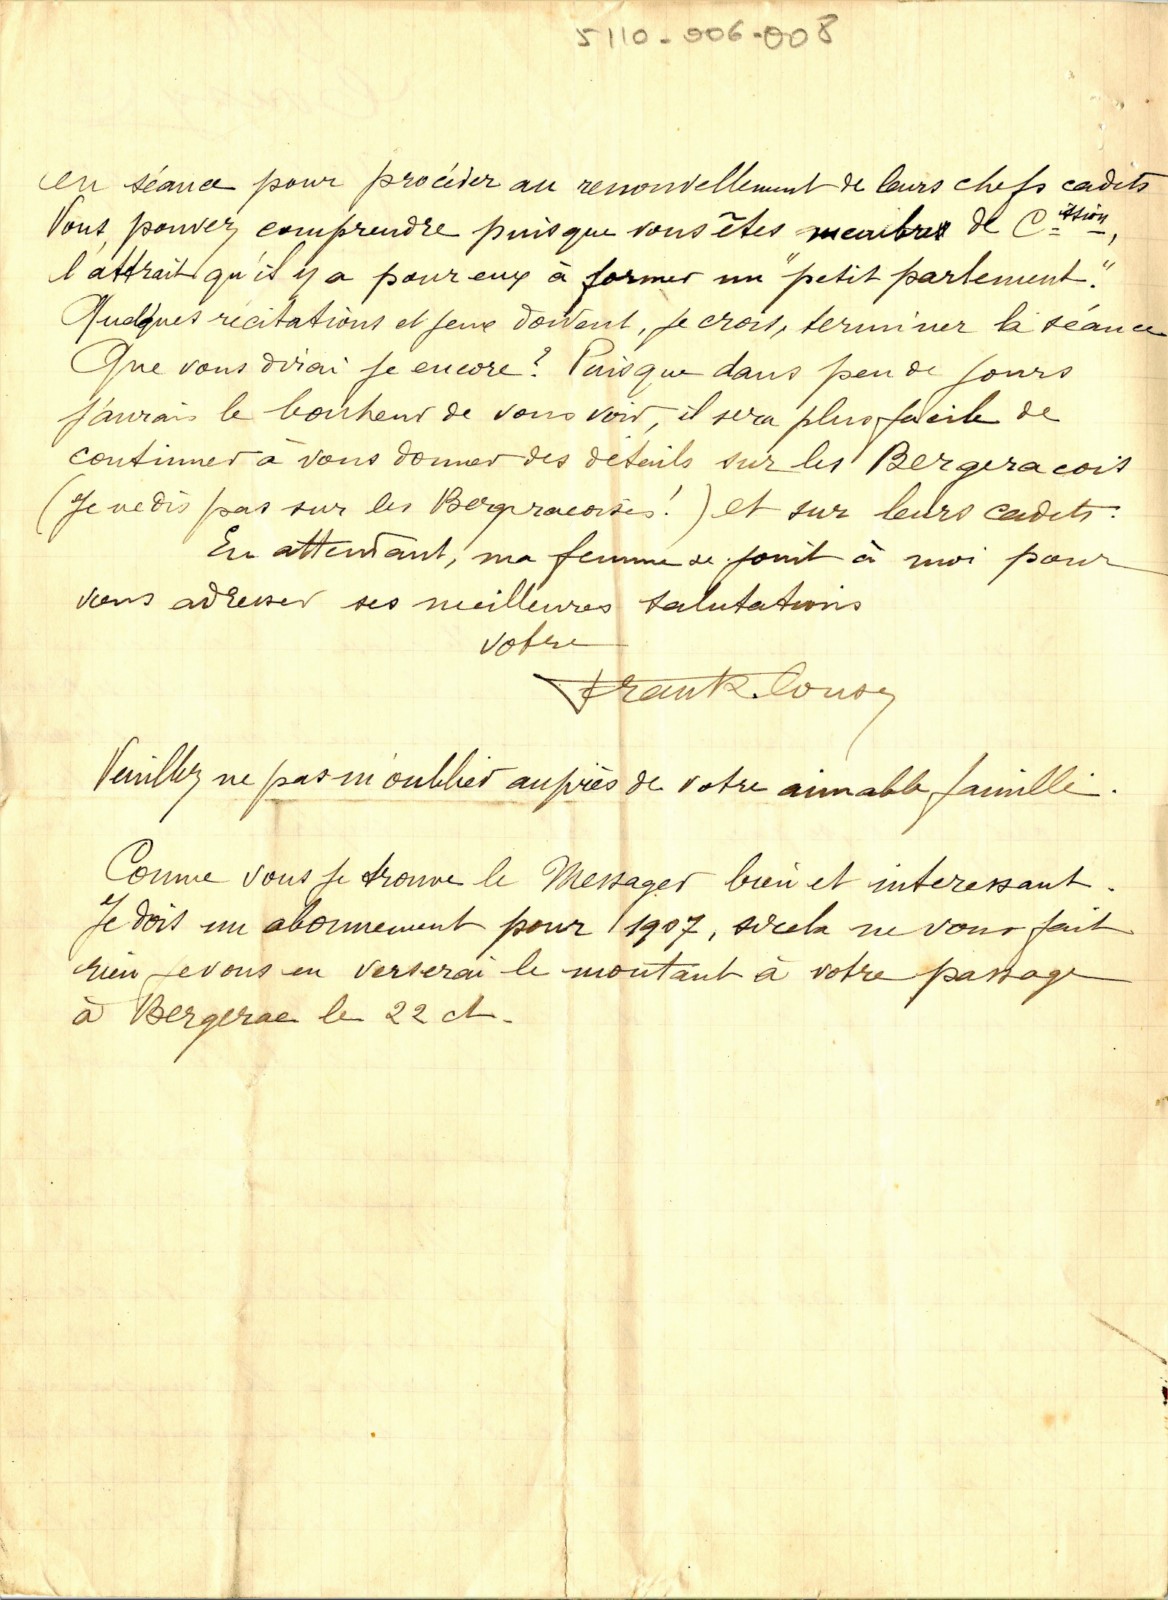 5110-006-008
en séance pour procéder au renouvellement de leurs chefs cadets
Vous pouvez comprendre puisque vous êtes membre de C^ission,
l'attrait qu'il y a pour eux à former un "petit parlement".
Quelques récitations et jeux doivent, je crois, terminer la séance
Que vous dirai je encore? Puisque dans peu de jours
j'aurais le bonheur de vous voir, il sera plus facile de
continuer à vous donner des détails sur les Bergeracois
(Je ne dis pas sur les Bergeracoises!) et sur leurs cadets.
En attendant, ma femme se joint à moi pour
vous adresser ses meilleures salutations
votre
Frank Cousy
Veuillez ne pas m'oublier auprès de votre aimable famille.
Comme vous je trouve le Messager bien et interessant.
Je dois un abonnement pour 1907, si cela ne vous fait
rien je vous en verserai le montant à votre passage
à Bergerac le 22 ct.